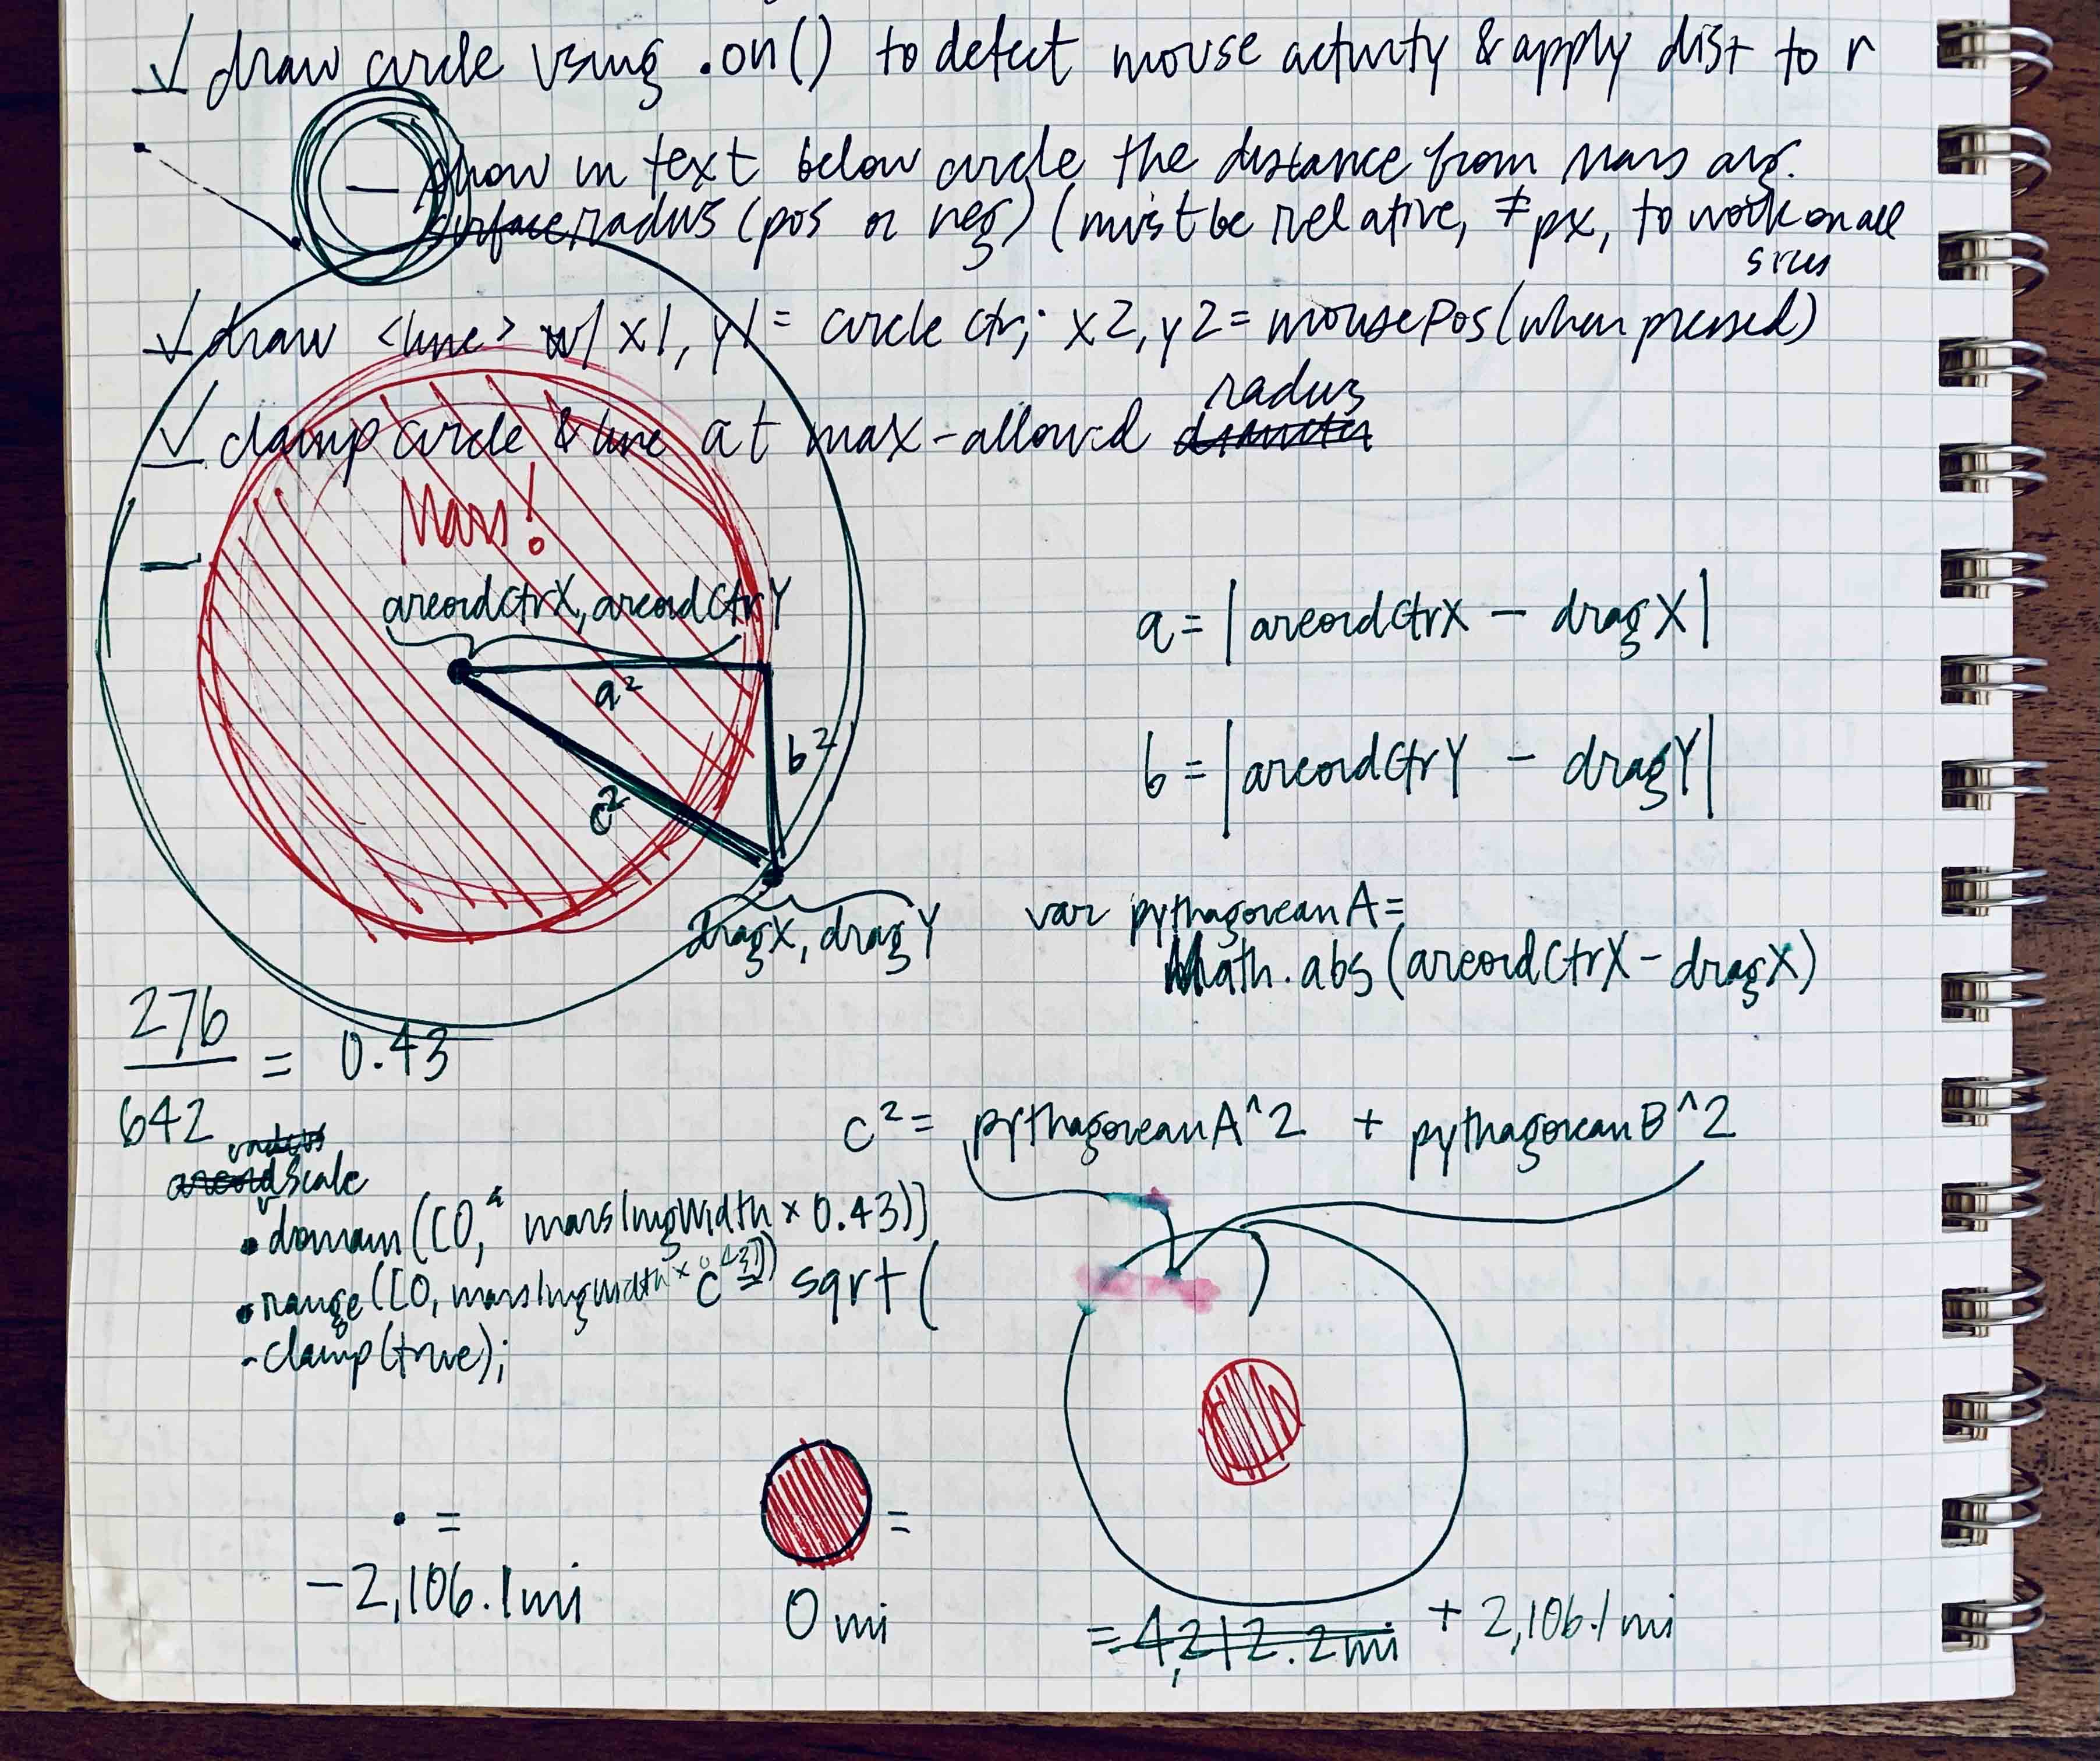 draw circle using .on() to detect mouse activity & apply dist to r
— show in text below circle the distance from Mars avg.
surface radius (pos or neg) (must be relative, ≠ px, to work on all
sizes
draw <line> w/ x1, y1 = circle ctr; x2, y2 = mousePos (when pressed)
radius
clamp circle & line at max-allowed diameter
Mars!
areoidCtrX, areoidCtrY
a²
b²
c²
dragX, dragY
a = | areoidCtrX - dragX |
b = | areoidCtrY - dragY |
var pythagoreanA =
Math.abs (areoidCtrX - dragX)
276
= 0.43
642
c² = pythagoreanA^2 + pythagoreanB^2
radius
areoidScale
.domain([0, marsImgWidth × 0.43)]
.range([0, marsImgWidth ×
c = sqrt (
.clamp(true);
• =
-2,106.1 mi
=
0 mi
= 4,212.2 mi + 2,106.1 mi